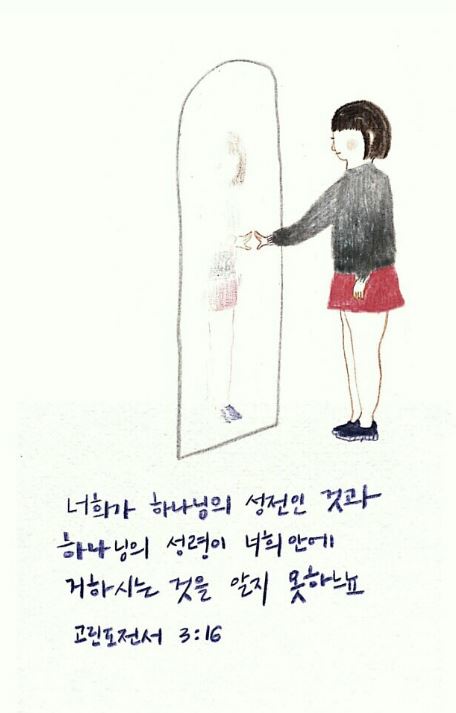 너희가 하나님의 성전인 것과
하나님의 성령이 너희 안에
거하시는 것을 알지 못하느뇨
고린도전서 3:16